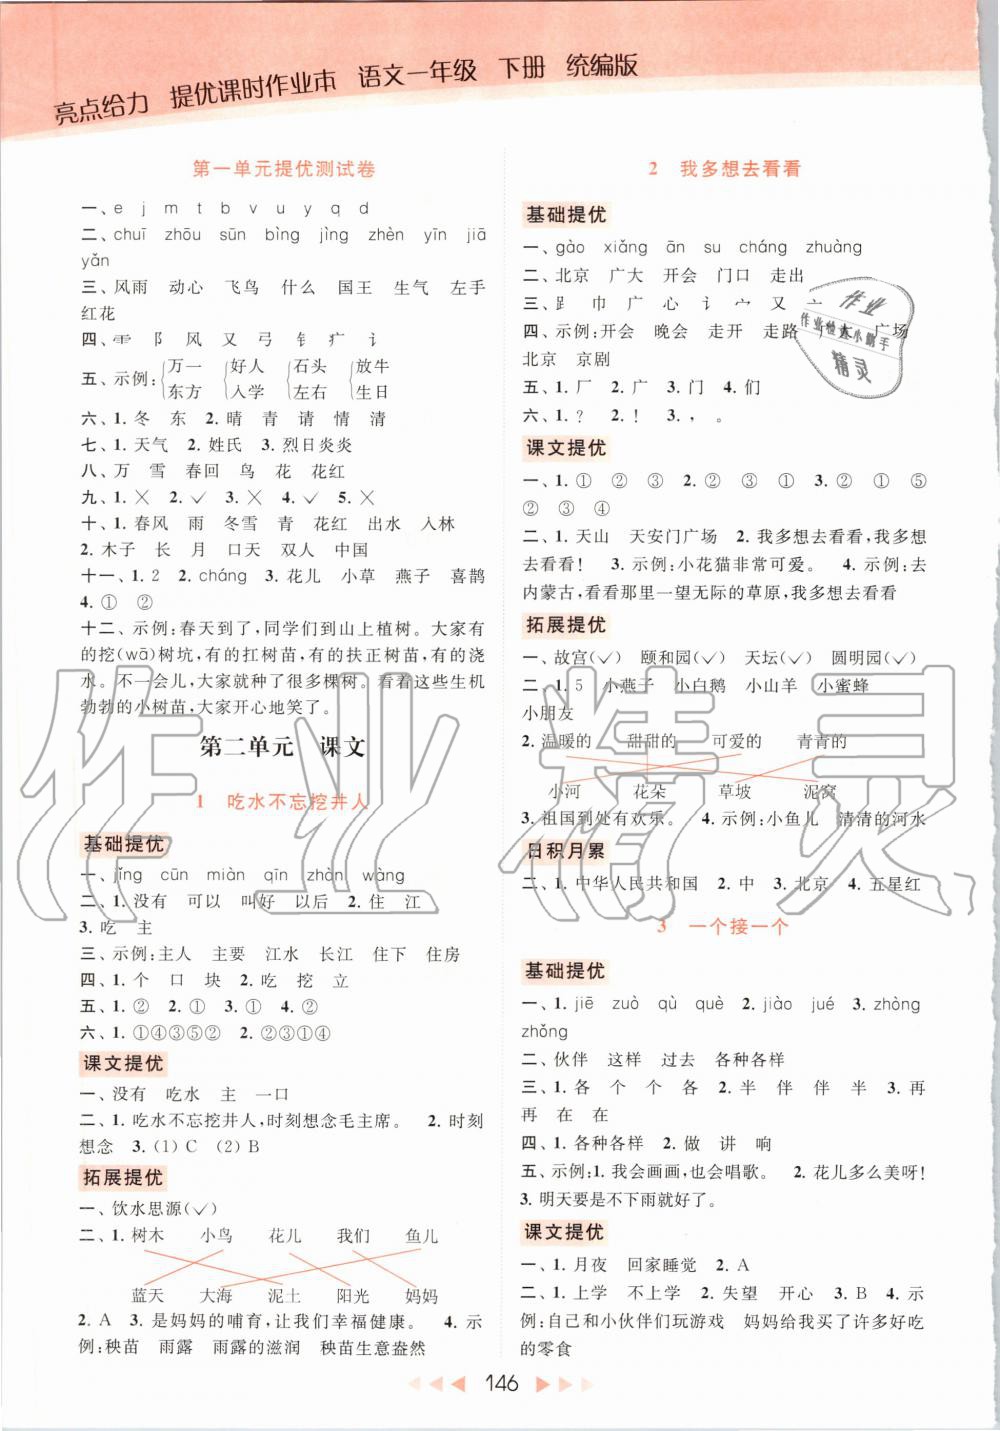 亮点给力 提优课时作业本 语文一年级 下册 统编版
第一单元提优测试卷
一、e j m t b v u y q d
二、chuī zhōu sūn bìng jìng zhèn yīn jiā
yǎn
三、风雨 动心 飞鸟 什么 国王 生气 左手
红花
四、⻗ 阝 风 又 弓 钅 疒 讠
五、示例:万一 好人 石头 放牛
东方 入学 左右 生日
六、1. 冬 东 2. 晴 青 请 情 清
七、1. 天气 2. 姓氏 3. 烈日炎炎
八、万 雪 春回 鸟 花 花红
九、1. ╳ 2. ✓ 3. ╳ 4. ✓ 5. ╳
十、1. 春风 雨 冬雪 青 花红 出水 入林
2. 木子 长 月 口天 双人 中国
十一、1. 2 2. cháng 3. 花儿 小草 燕子 喜鹊
4. ① ②
十二、示例:春天到了,同学们到山上植树。大家有
的挖(wā)树坑,有的扛树苗,有的扶正树苗,有的浇
水。不一会儿,大家就种了很多棵树。看着这些生机
勃勃的小树苗,大家开心地笑了。
第二单元 课文
1 吃水不忘挖井人
基础提优
一、jǐng cūn miàn qīn zhàn wàng
二、1. 没有 可以 叫好 以后 2. 住 江
3. 吃 主
三、示例:主人 主要 江水 长江 住下 住房
四、1. 个 口 块 2. 吃 挖 立
五、1. ② 2. ① 3. ① 4. ②
六、1. ①④③⑤② 2. ②③①④
课文提优
一、没有 吃水 主 一口
二、1. 吃水不忘挖井人,时刻想念毛主席。 2. 时刻
想念 3. (1) C (2) B
拓展提优
一、饮水思源(✓)
二、1. 树木 小鸟 花儿 我们 鱼儿
蓝天 大海 泥土 阳光 妈妈
2. A 3. 是妈妈的哺育,让我们幸福健康。 4. 示
例:秧苗 雨露 雨露的滋润 秧苗生意盎然
2 我多想去看看
基础提优
一、gào xiǎng ān su cháng zhuàng
二、北京 广大 开会 门口 走出
三、⻊ 巾 广 心 讠 宀 又 亠
四、示例:开会 晚会 走开 走路 广场
北京 京剧
五、1. 厂 2. 广 3. 门 4. 们
六、1. ? 2. ! 3. , 。
课文提优
一、1. ① ② ③ 2. ② ③ ① 3. ② ① ⑤
② ③ ④
二、1. 天山 天安门广场 2. 我多想去看看,我多想
去看看! 3. 示例:小花猫非常可爱。 4. 示例:去
内蒙古,看看那里一望无际的草原,我多想去看看
拓展提优
一、故宫(✓) 颐和园(✓) 天坛(✓) 圆明园(✓)
二、1. 5 小燕子 小白鹅 小山羊 小蜜蜂
小朋友
2. 温暖的 甜甜的 可爱的 青青的
小河 花朵 草坡 泥窝
3. 祖国到处有欢乐。 4. 示例:小鱼儿 清清的河水
日积月累
二、1. 中华人民共和国 2. 中 3. 北京 4. 五星红
3 一个接一个
基础提优
一、1. jiē zuò qù què 2. jiào jué 3. zhòng
zhǒng
二、伙伴 这样 过去 各种各样
三、1. 各 个 个 各 2. 半 伴 伴 半 3. 再
再 在 在
四、1. 各种各样 2. 做 讲 响
五、示例:1. 我会画画,也会唱歌。 2. 花儿多么美呀!
3. 明天要是不下雨就好了。
课文提优
一、1. 月夜 回家睡觉 2. A
二、1. 上学 不上学 2. 失望 开心 3. B 4. 示
例:自己和小伙伴们玩游戏 妈妈给我买了许多好吃
的零食
146
作业
作业检查小帮手
精灵
作业精灵